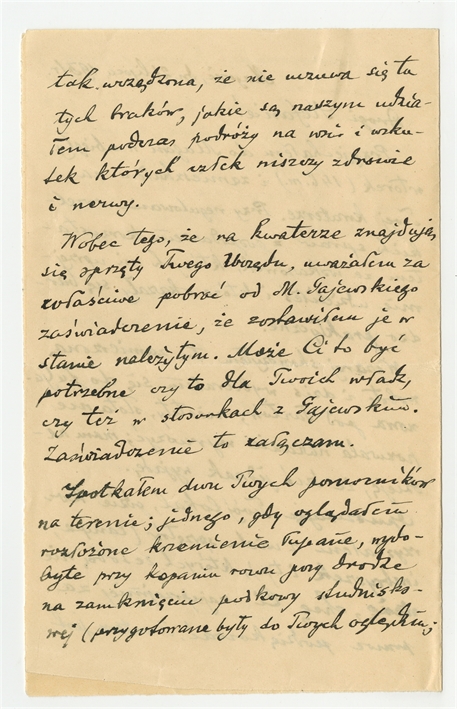 tak urządzona, że nie uczuwa się tu
tych braków, jakie są naszym udzia-
łem podczas podróży na wsi i wsku-
tek których człek niszczy zdrowie
i nerwy.
Wobec tego, że na kwaterze znajdują
się sprzęty Twego Urzędu, uważałem za
właściwe pobrać od M. Gajewskiego
zaświadczenie, że zostawiłem je w
stanie należytym. Może Ci to być
potrzebne czy to dla Twoich władz,
czy też w stosunkach z Gajewskim.
Zaświadczenie to załączam.
Spotkałem dwu Twych pomocników
na terenie; jednego, gdy oglądałem
rozłożone krzemienie łupane, wydo-
byte przy kopaniu rowu przy drodze
na zamknięciu podkowy studzisko-
wej (przygotowane były do Twych oględzin;